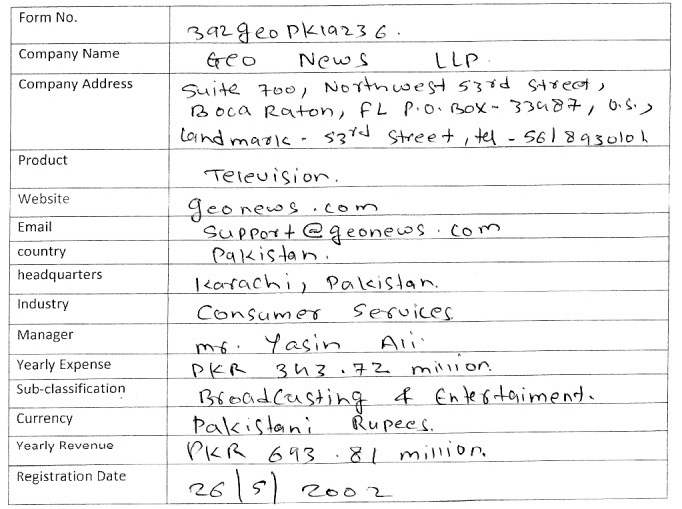 Form No. 392geoPK19236.
Company Name Geo News LLP.
Company Address Suite 700, Northwest 53rd Street,
Boca Raton, FL P.O. Box - 33987, U.S.,
Landmark - 53rd Street, tel - 5618930101
Product Television.
Website geonews.com
Email support@geonews.com
country Pakistan.
headquarters Karachi, Pakistan.
Industry Consumer Services
Manager mr. Yasin Ali.
Yearly Expense PKR 343.72 million.
Sub-classification Broadcasting & Entertaiment.
Currency Pakistani Rupees.
Yearly Revenue PKR 693.81 million.
Registration Date 26/5/2002